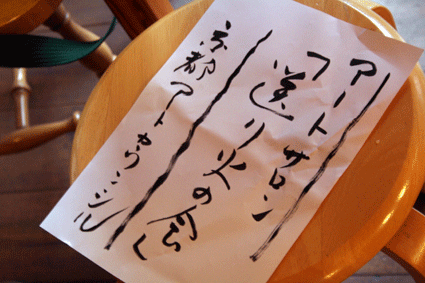 アートサロン
「送り火の会」
京都アートカウンシル